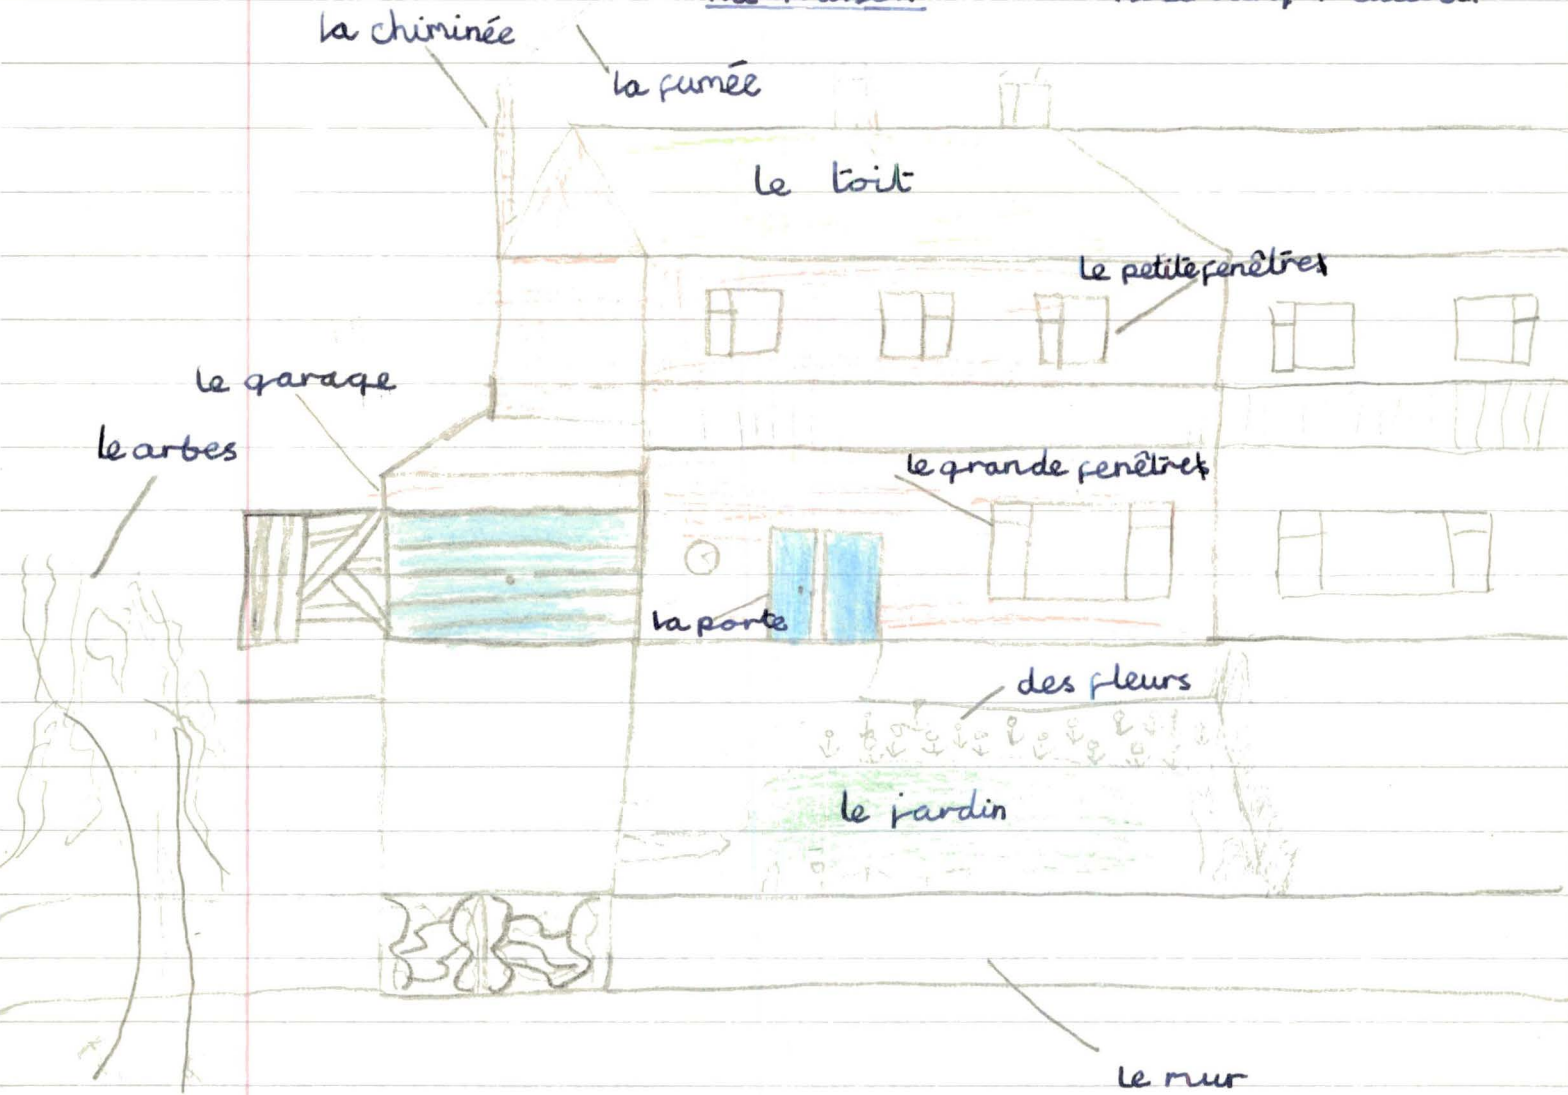 la chiminée
la fumée
le toit
le petite fenêtre
le garage
le arbes
le grande fenêtre
la porte
des fleurs
le jardin
le mur